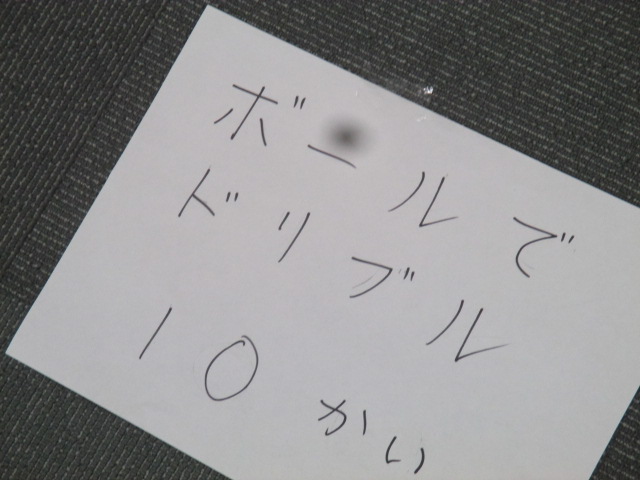 ボールで
ドリブル
10かい